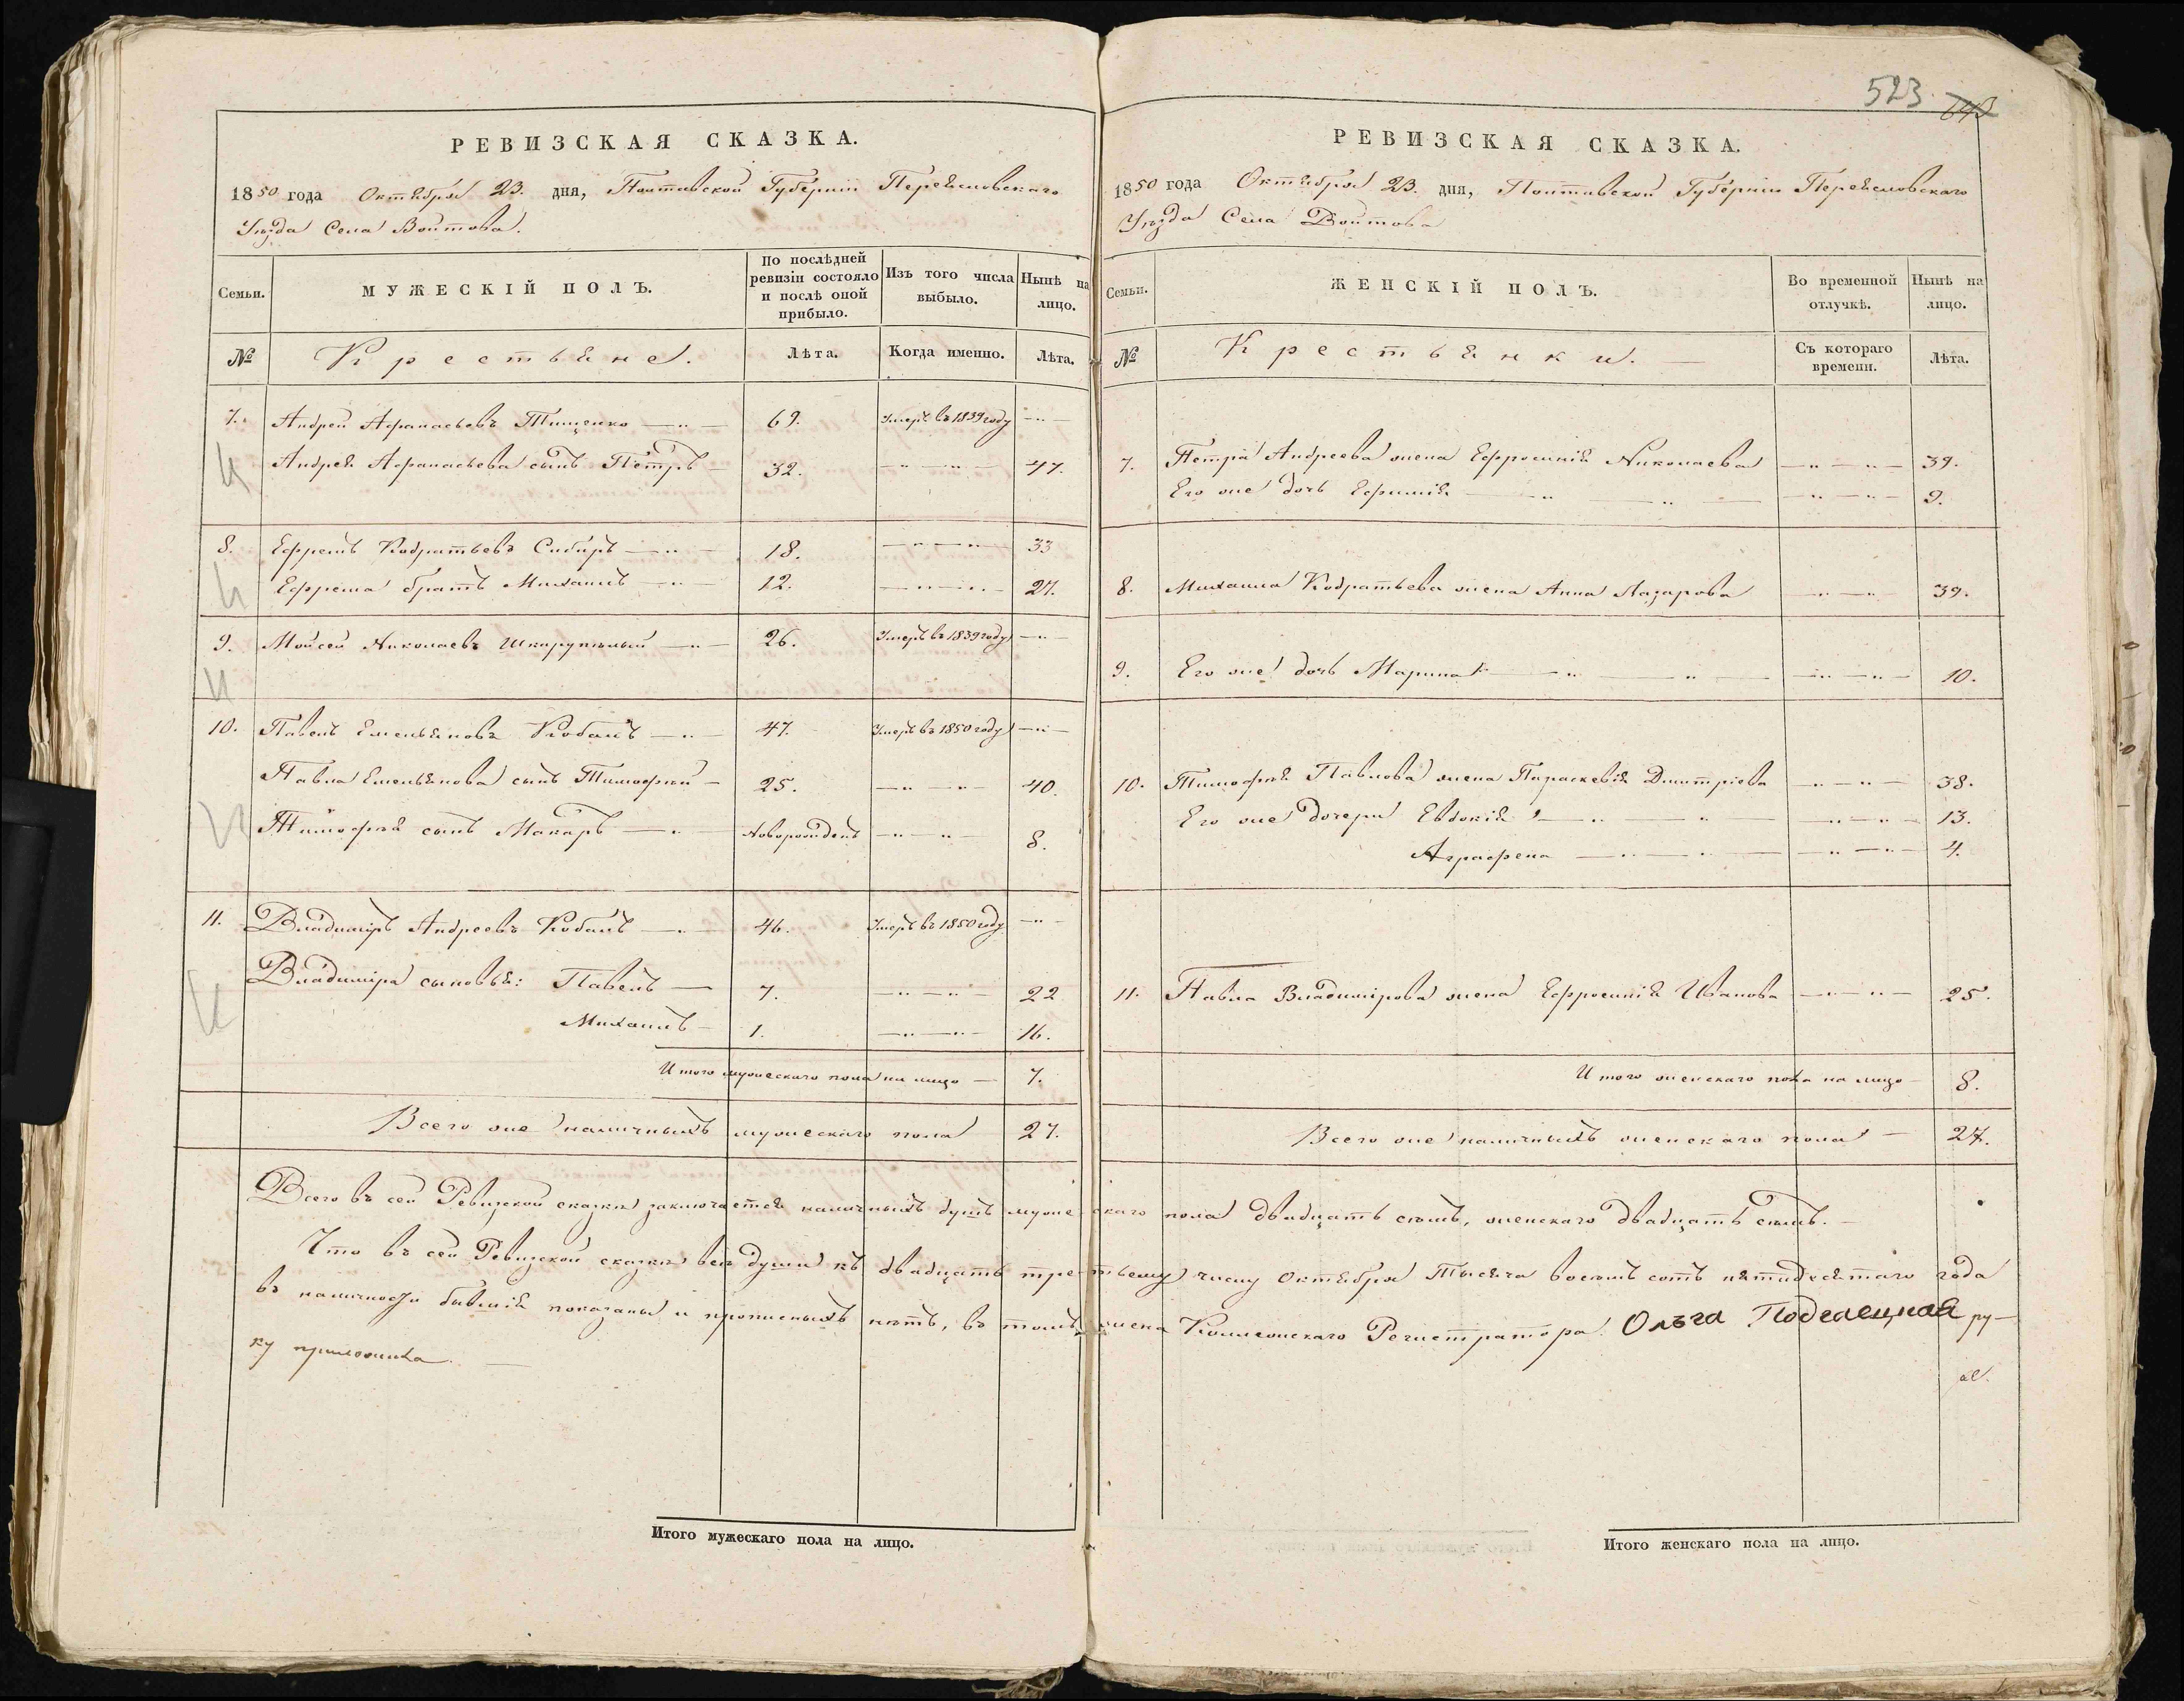 РЕВИЗСКАЯ СКАЗКА.
1850 года Октября 23. дня, Полтавской Губернiи Переяславскаго
Уѣзда Села Войтова.
Семьи.
МУЖЕСКIЙ ПОЛЪ.
По послѣдней ревизiи состояло и послѣ оной прибыло.
Изъ того числа выбыло.
Нынѣ на лицо.
№
Крестьяне.
Лѣта.
Когда именно.
Лѣта.
7. Андрей Афанасьевъ Тищенко —"— 69. Умеръ въ 1839 году —"—
Андрея Афанасьева сынъ Петръ — 32. —"—"— 47.
8. Ефремъ Кодратьевъ Сибиръ —"— 18. —"—"— 33
Ефрема братъ Михаилъ —"— 12. —"—"— 27.
9. Мойсей Николаевъ Шкарупѣлый —"— 26. Умеръ въ 1839 году —"—
10. Павелъ Емельяновъ Кобанъ —"— 47. Умеръ въ 1850 году —"—
Павла Емельянова сынъ Тимофѣй — 25. —"—"— 40.
Тимофѣя сынъ Макаръ —"— Новорожденъ —"—"— 8.
11. Владимiръ Андреевъ Кобанъ —"— 46. Умеръ въ 1850 году —"—
Владимiра сыновья: Павелъ — 7. —"—"— 22
Михаилъ — 1. —"—"— 16.
Итого мужескаго пола на лицо — 7.
Всего же наличныхъ мужескаго пола 27.
523.
РЕВИЗСКАЯ СКАЗКА.
1850 года Октября 23. дня, Полтавской Губернiи Переяславскаго
Уѣзда Села Войтова
Семьи.
ЖЕНСКIЙ ПОЛЪ.
Во временной отлучкѣ.
Нынѣ на лицо.
№
Крестьянки. —
Съ котораго времени.
Лѣта.
7. Петра Андреева жена Ефросинiя Николаева —"—"— 39.
Его же дочь Ефимiя —"—"— —"—"— 9.
8. Михаила Кодратьева жена Анна Лазарова —"—"— 39.
9. Его же дочь Марина —"—"— —"—"— 10.
10. Тимофѣя Павлова жена Параскевiя Дмитрiева —"—"— 38.
Его же дочери Евдокiя —"—"— —"—"— 13.
Аграфена —"—"— —"—"— 4.
11. Павла Владимiрова жена Ефросинiя Иванова —"—"— 25.
Итого женскаго пола на лицо — 8.
Всего же наличныхъ женскаго пола — 27.
Всего въ сей Ревизской сказкѣ заключается наличныхъ душъ мужескаго пола двадцать семь, женскаго двадцать семь. —
Что въ сей Ревизской сказкѣ всѣ души къ двадцать третьему числу Октября Тысяча восемь сотъ пятидесятаго года
въ наличности бывшiя показаны и прописныхъ нѣтъ, въ томъ жена Коллежскаго Регистратора Ольга ру-
ку приложила. —
Итого мужескаго пола на лицо.
Итого женскаго пола на лицо.